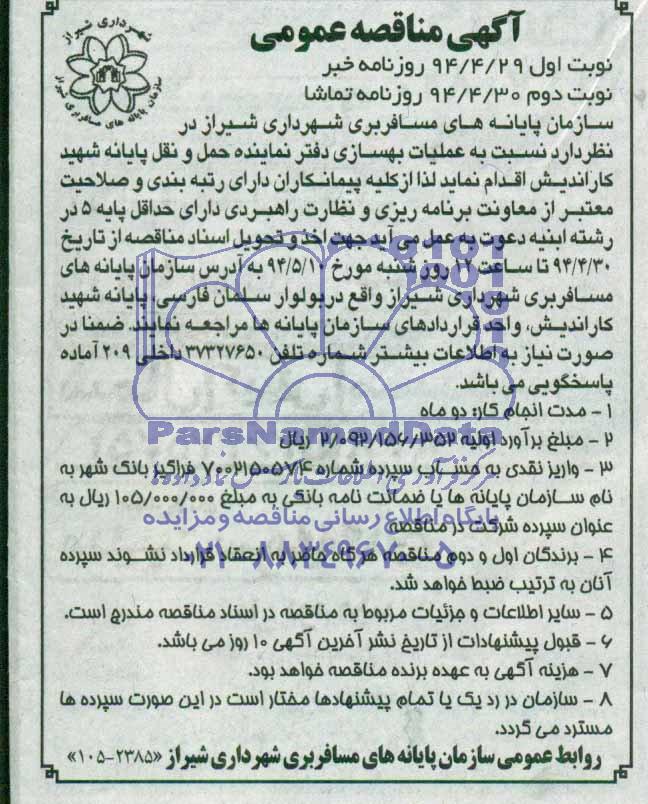 شهرداری شیراز
سازمان پایانه های مسافربری شیراز
آگهی مناقصه عمومی
نوبت اول ۹۴/۴/۲۹ روزنامه خبر
نوبت دوم ۹۴/۴/۳۰ روزنامه تماشا
سازمان پایانه های مسافربری شهرداری شیراز در
نظر دارد نسبت به عملیات بهسازی دفتر نماینده حمل و نقل پایانه شهید
کاراندیش اقدام نماید لذا از کلیه پیمانکاران دارای رتبه بندی و صلاحیت
معتبر از معاونت برنامه ریزی و نظارت راهبردی دارای حداقل پایه ۵ در
رشته ابنیه دعوت به عمل می آید جهت اخذ و تحویل اسناد مناقصه از تاریخ
۹۴/۴/۳۰ تا ساعت ۱۲ روز شنبه مورخ ۹۴/۵/۱۰ به آدرس سازمان پایانه های
مسافربری شهرداری شیراز واقع در بولوار سلمان فارسی، پایانه شهید
کاراندیش، واحد قراردادهای سازمان پایانه ها مراجعه نمایند. ضمنا در
صورت نیاز به اطلاعات بیشتر شماره تلفن ۳۷۳۲۷۶۵۰ داخلی ۲۰۹ آماده
پاسخگویی می باشد.
۱ - مدت انجام کار: دو ماه
۲ - مبلغ برآورد اولیه ۲/۰۹۲/۱۵۶/۳۵۲ ریال
ParsNamadData
۳ - واریز نقدی به حساب سپرده شماره ۷۰۰۲۱۵۰۰۵۷۴ فراگیر بانک شهر به
مرکز فرآوری اطلاعات پارس نماد داده ها
نام سازمان پایانه ها یا ضمانت نامه بانکی به مبلغ ۱۰۵/۰۰۰/۰۰۰ ریال به
پایگاه اطلاع رسانی مناقصه و مزایده
عنوان سپرده شرکت در مناقصه
۰۲۱-۸۸۳۴۹۶۷۰-۵
۴ - برندگان اول و دوم مناقصه هرگاه حاضر به انعقاد قرارداد نشوند سپرده
آنان به ترتیب ضبط خواهد شد.
۵ - سایر اطلاعات و جزئیات مربوط به مناقصه در اسناد مناقصه مندرج است.
۶ - قبول پیشنهادات از تاریخ نشر آخرین آگهی ۱۰ روز می باشد.
۷ - هزینه آگهی به عهده برنده مناقصه خواهد بود.
۸ - سازمان در رد یک یا تمام پیشنهادها مختار است در این صورت سپرده ها
مسترد می گردد.
روابط عمومی سازمان پایانه های مسافربری شهرداری شیراز «۲۳۸۵-۱۰۵»